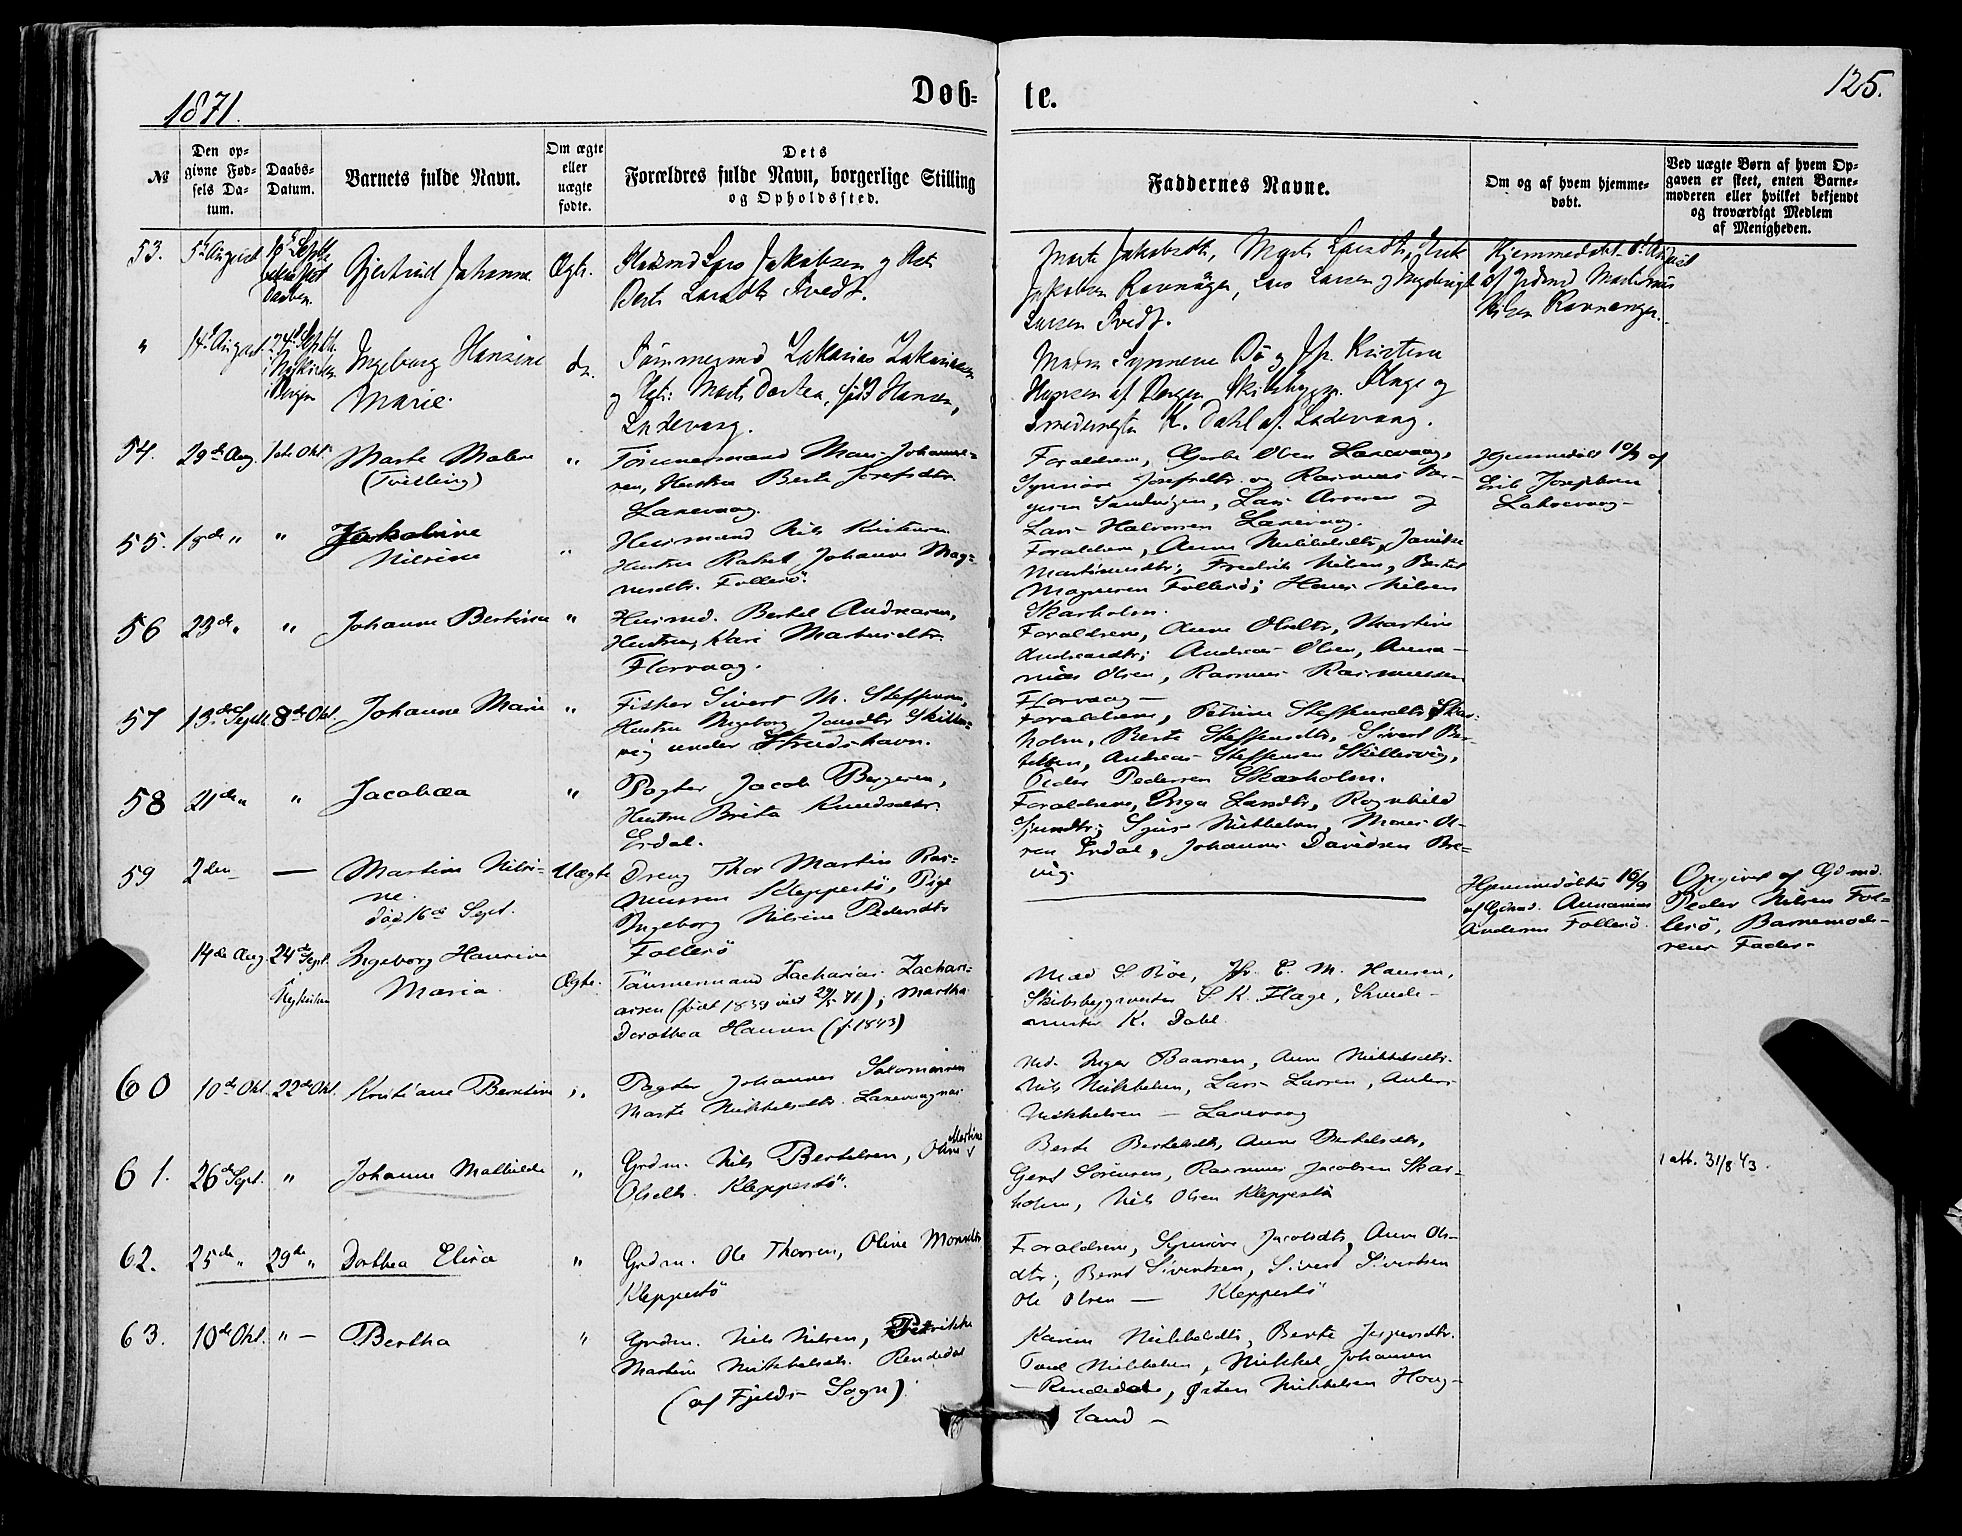 1871.
Døb-
te.
125.
№
Den op-
givne Fød-
sels Da-
tum.
Daabs-
Datum.
Barnets fulde Navn.
Om ægte
eller
uægte
fødte.
Dets
Forældres fulde Navn, borgerlige Stilling
og Opholdssted.
Faddernes Navne.
Om og af hvem hjemme-
døbt.
Ved uægte Børn af hvem Op-
gaven er skeet, enten Barne-
moderen eller hvilket bekjendt
og troværdigt Medlem
af Menigheden.
53.
5t August
Gjertrud Johanne
Ægte.
Lars Jakobsen og
Berte Larsdtr Tvedt.
Marte Jakobsdtr, Marte Larsdtr, Erik
Jakobsen Ravnanger, Lars Larsen og
Larsen Tvedt.
Hjemmedøbt
af Martinus
Nilsen Ravnanger.
"
14d August
24d Septbr.
i Nykirken
i Bergen
Ingeborg Hansine
Marie.
do.
Tømmermd Zakarias Zakariassen
og Marte Dortea, født Hansen,
Ladevaag.
Madm Synneve Bö og Jfr. Kristine
Hansen af Bergen, Skibsbygm. Flage og
K. Dahl af Ladevaag.
54.
29de Aug.
1ste Okt.
Marte Malene
(Tvilling)
"
Tømmermand Mons Johanne-
sen, Hustru Berte Josefsdtr
Laxevaag.
Forældrene, Olsen Laxevaag,
Synnöve Josefsdtr. og Rasmus Bør-
gesen Sandvigen, Lars Arnesen og
Lars Halvorsen Laxevaag.
Hjemmedöbt 10/9 af
Erik Josephsen
Laksevaag
55.
18de "
"
Jakobine
Nilsine
"
Huusmand Nils Kristensen
Hustru Rakel Johanne Mag-
nusdtr. Follesö.
Forældrene, Anne Mikkelsdtr, Janikke
Martinusdtr; Fredrik Nilsen, Bertel
Magnesen Follesö; Hans Nilsen
Skarholm.
56
23de "
"
Johanne Bertine
"
Husmd. Bertel Andreasen,
Hustru Kari Martinsdtr.
Florvaag.
Forældrene, Anne Olsdtr, Martine
Andreasdtr; Andreas Olsen, Anna-
nias Olsen, Rasmus Rasmussen
Florvaag
57
13de Septb.
8de Okt.
Johanne Marie
"
Fisker Sivert M. Steffensen,
Hustru Ingeborg Jonsdtr Skiller-
vig under Strudshavn.
Forældrene, Petrine Steffensdtr, Skar-
holm, Berte Steffensdtr, Sivert Ber-
telsen, Andreas Steffensen Skillervig,
Peder Pedersen Skarholm.
58
21de "
"
Jacobæa
"
Pagter Jacob Børgesen,
Hustru Brita Knudsdtr.
Erdal.
Forældrene, Inga Larsdtr, Ragnhild
Sjursdtr; Sjur Mikkelsen, Mons Ol-
sen Erdal, Johannes Davidsen Bre-
vig.
59
2den
—
Martine Nilsi-
ne.
død 16de Sept.
Uægte
Dreng Thor Martin Ras-
mussen Kleppestö, Pige
Ingeborg Nilsine Pedersdtr
Follesö
Hjemmedöbt 16/9
af Gdmd. Annanias
Andersen Follesö.
Opgivet af Gdmd.
Peder Nilsen Fol-
lesö, Barnemode-
rens Fader.
14de Aug.
24de Sept.
i Nykirken
Ingeborg Hansine
Maria.
Ægte.
Tømmermand Zacharias Zachari-
assen (født 1839 viet 29/5 71); Martha
Dorothea Hansen (f. 1843)
Mad S. Böe, Jfr. C. M. Hansen,
Skibsbygmester S. K. Flage, Smede-
mester K. Dahl.
60
10de Okt.
22de Okt.
Kristiane Berntine
".
Pagter Johannes Salomonsen
Marte Mikkelsdtr. Laxevaagnæs
Md. Inger Baarsen, Anne Mikkelsdtr.
Nils Mikkelsen, Lars Larsen, Anders
Mikkelsen — Laxevaag
61.
26de Sept.
"
Johanne Mathilde
"
Grdm. Nils Bertelsen, Oline Martine
Olsdtr. Kleppestö.
Berte Bertelsdtr, Anne Bertelsdtr,
Gert Sörensen, Rasmus Jacobsen Skar-
holm, Nils Olsen Kleppestö
1 att. 31/8 43.
62.
25de "
29de "
Dorthea Elisa
"
Grdm. Ole Thorsen, Oline Monsdtr
Kleppestö
Forældrene, Synnöve Jacobsdtr, Anne Ols-
dtr; Bernt Sivertsen, Sivert Sivertsen
Ole Olsen — Kleppestö
63.
10de Okt.
" —
Bertha
"
Grdm. Nils Nilsen, Petrikke
Martine Mikkelsdtr. Rendedal
(af Fjelds Sogn)
Karine Mikkelsdtr, Berte Jespersdtr.
Mikkelsen, Mikkel Johansen
— Rendedal, Østen Mikkelsen Houg-
land —